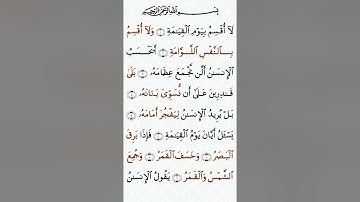 بِسْمِ اللَّهِ الرَّحْمَٰنِ الرَّحِيمِ
لَآ أُقْسِمُ بِيَوْمِ الْقِيَٰمَةِ ۝ وَلَآ أُقْسِمُ
بِالنَّفْسِ اللَّوَّامَةِ ۝ أَيَحْسَبُ
الْإِنسَٰنُ أَلَّن نَّجْمَعَ عِظَامَهُۥ ۝ بَلَىٰ
قَٰدِرِينَ عَلَىٰٓ أَن نُّسَوِّىَ بَنَانَهُۥ ۝
بَلْ يُرِيدُ الْإِنسَٰنُ لِيَفْجُرَ أَمَامَهُۥ ۝
يَسْـَٔلُ أَيَّانَ يَوْمُ الْقِيَٰمَةِ ۝ فَإِذَا بَرِقَ
الْبَصَرُ ۝ وَخَسَفَ الْقَمَرُ ۝ وَجُمِعَ
الشَّمْسُ وَالْقَمَرُ ۝ يَقُولُ الْإِنسَٰنُ